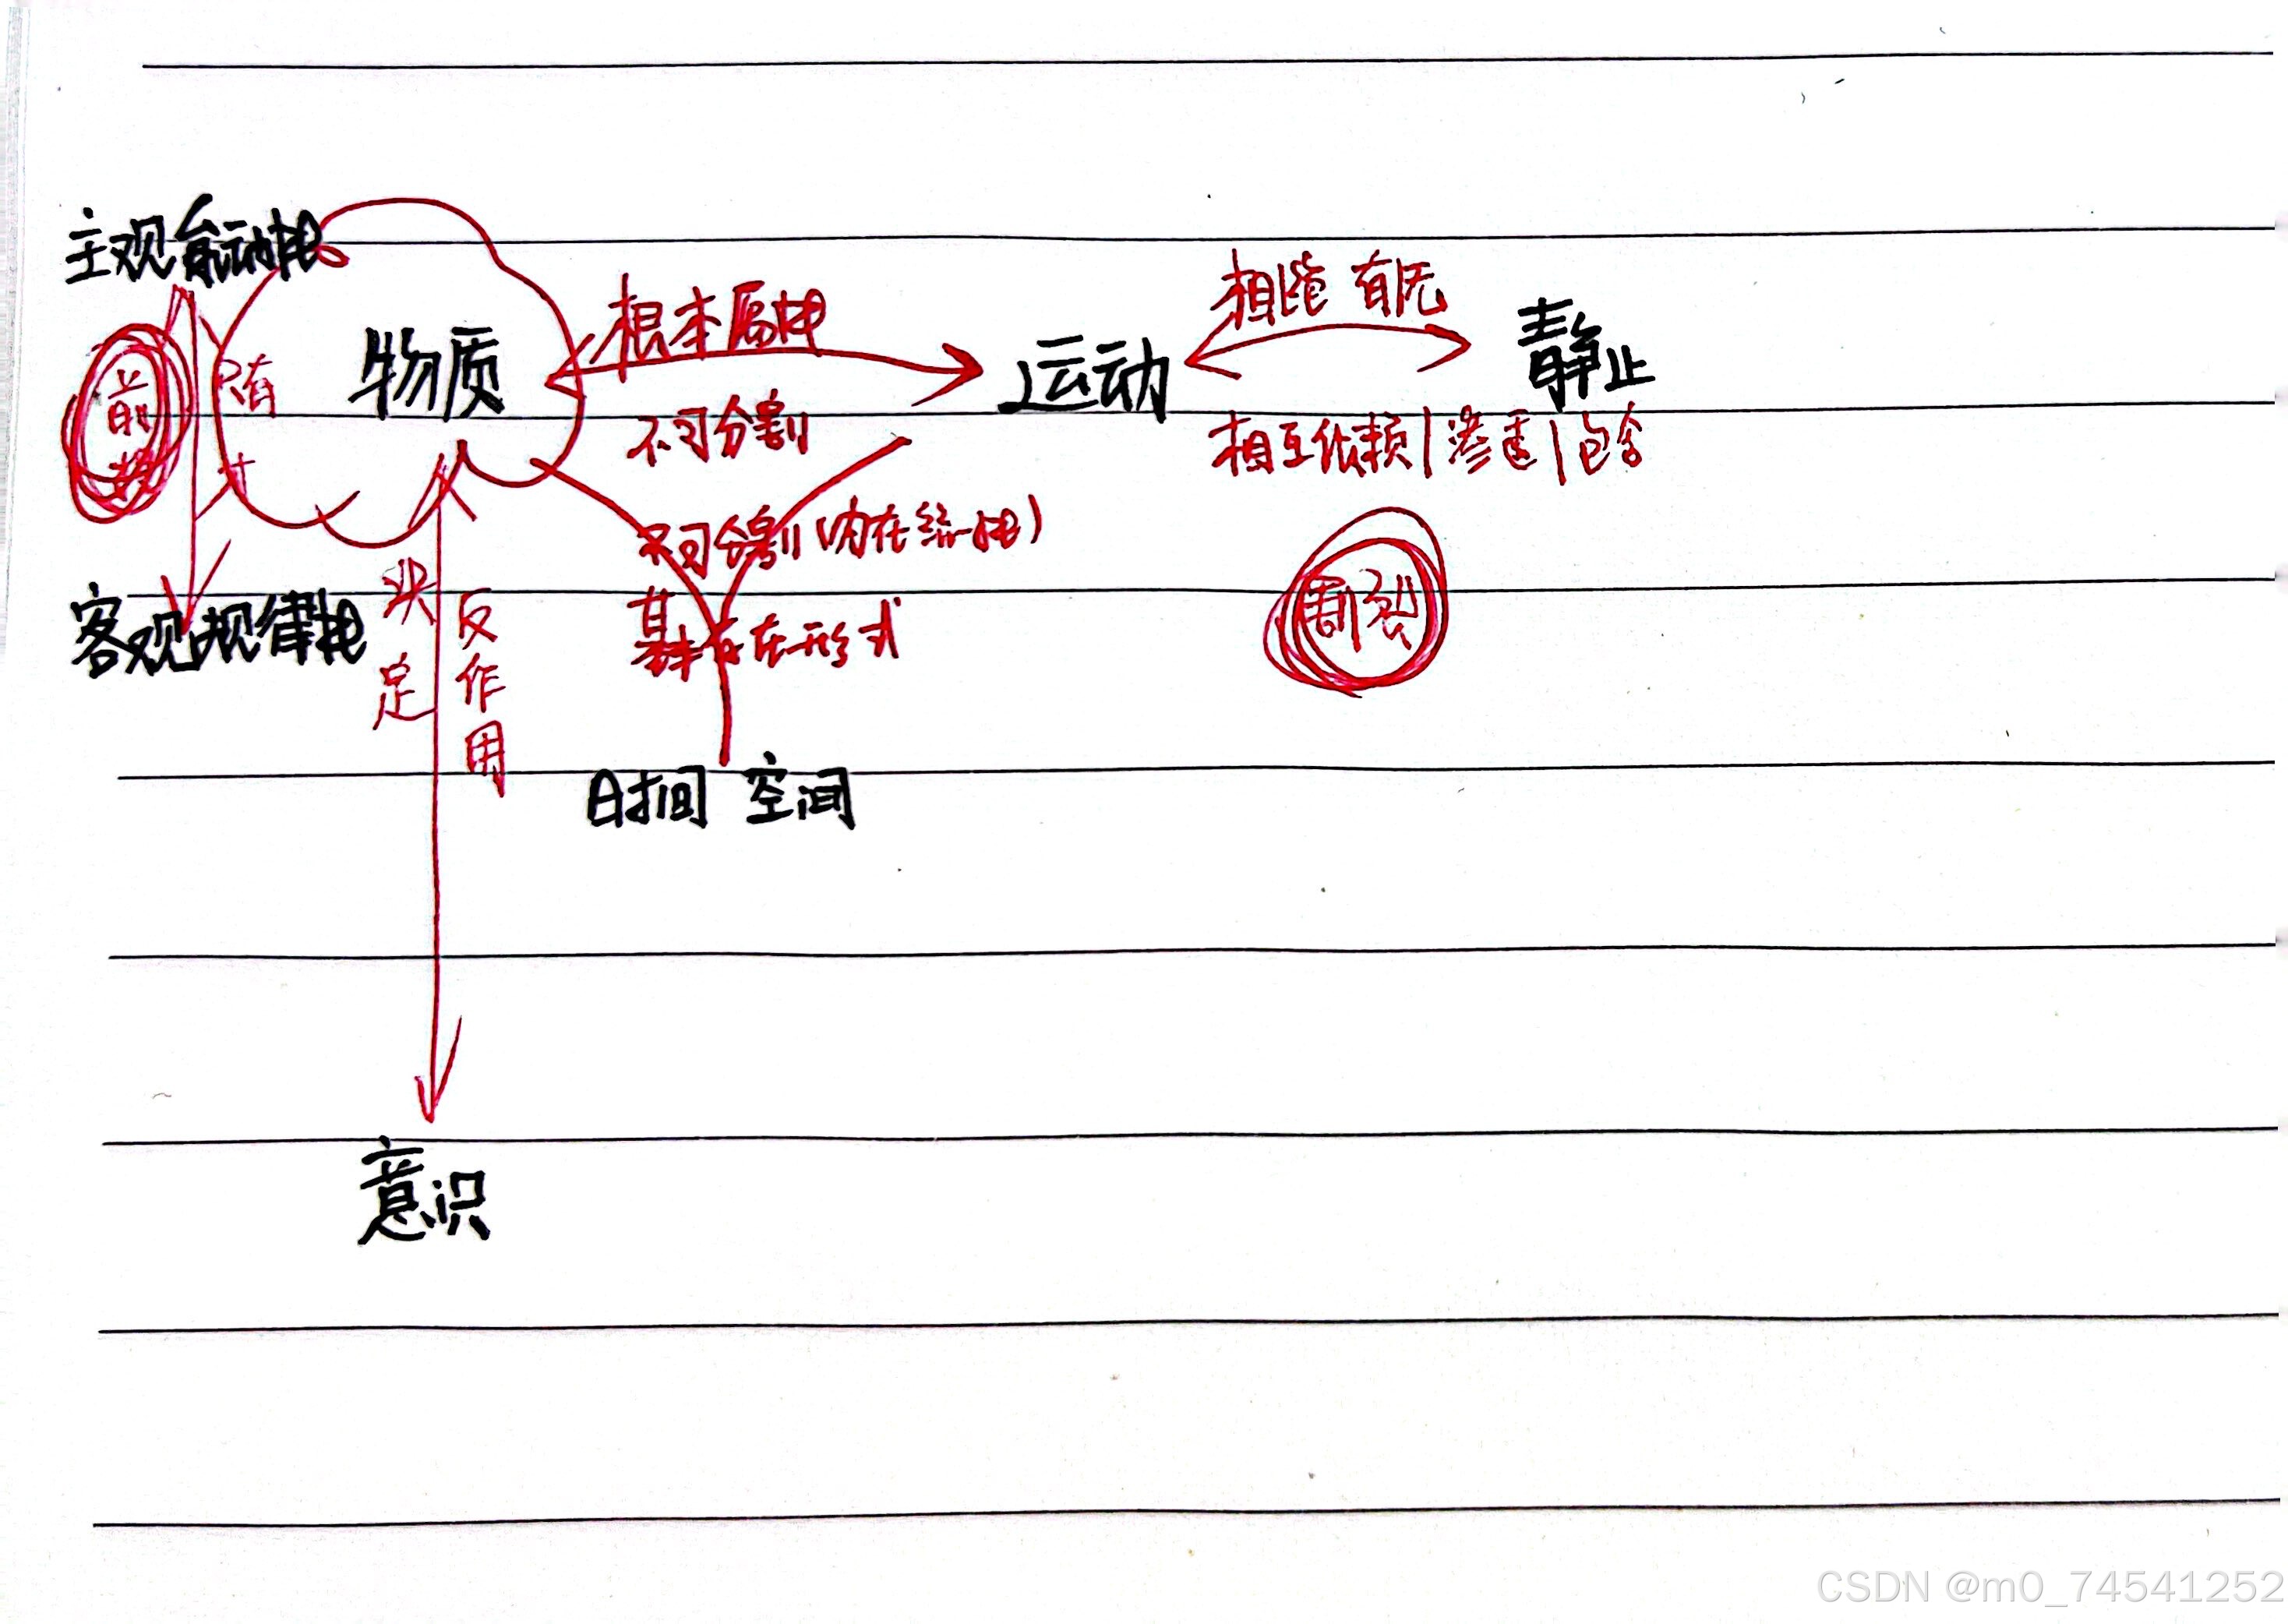 主观能动性
物质
根本属性
不可分割
运动
静止
相互依赖|渗透|包含
前提
只有
才
不可分割(内在统一性)
基本存在形式
割裂
客观规律性
决定
反作用
时间 空间
意识
CSDN @m0_74541252